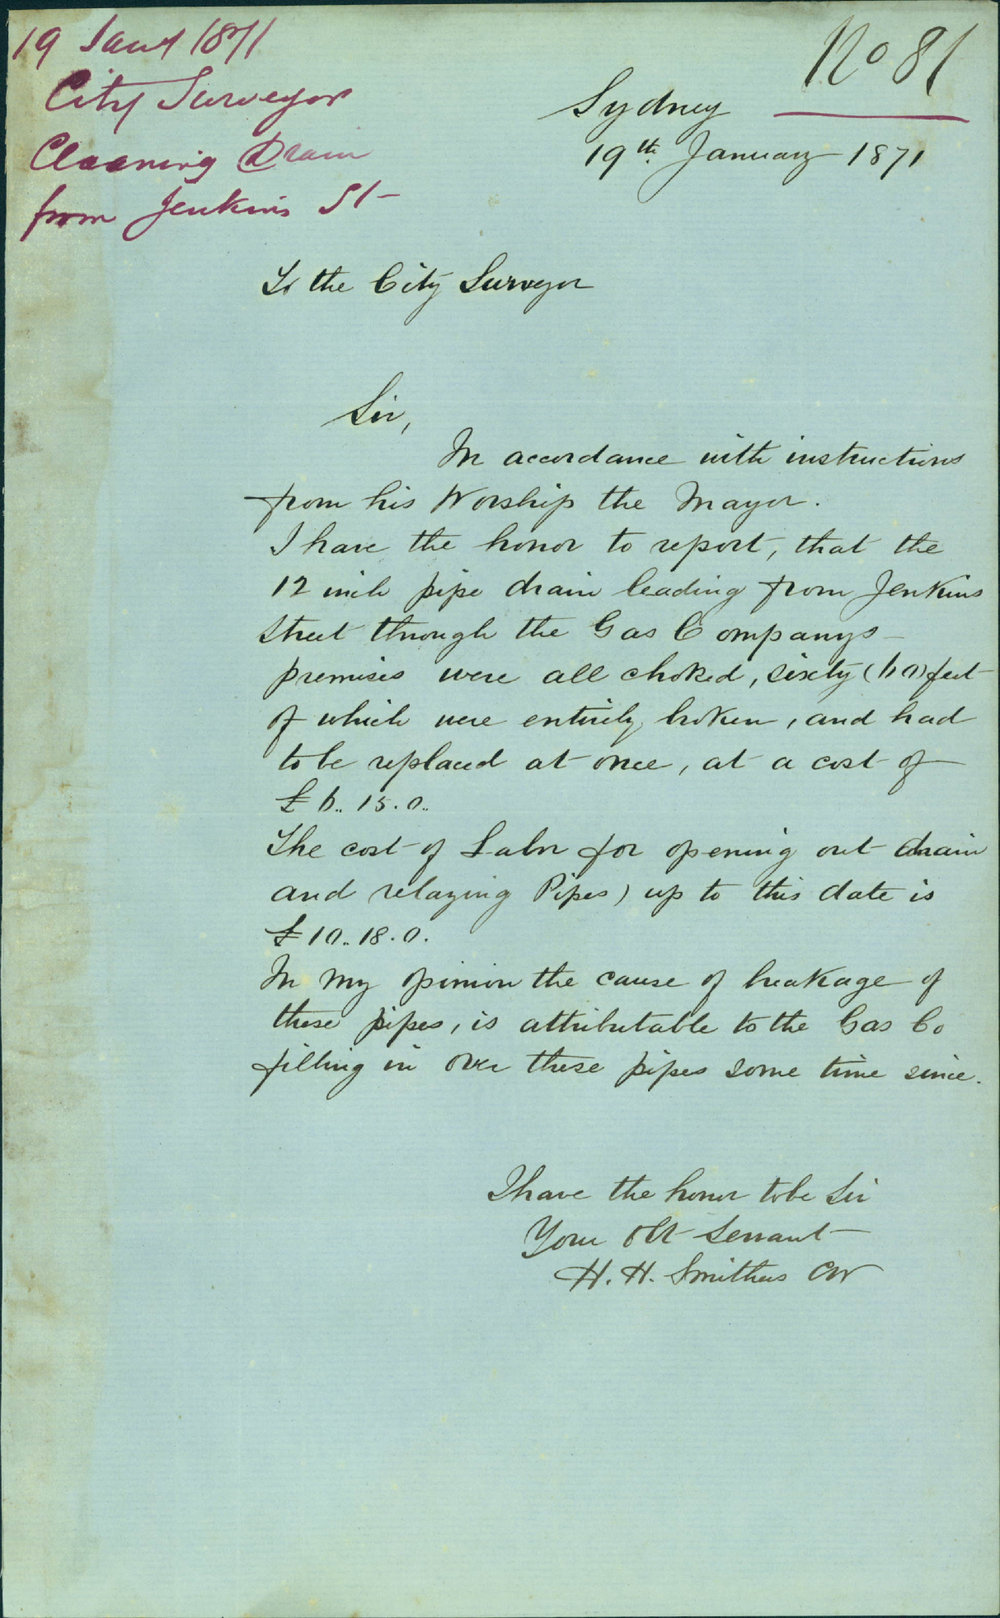 19 Jany 1871
City Surveyor
Cleaning Drain
from Jenkins St
No 81
Sydney
19th January 1871
To the City Surveyor
Sir,
In accordance with instructions
from his Worship the Mayor.
I have the honor to report, that the
12 inch pipe drain leading from Jenkins
Street through the Gas Companys
premises were all choked, sixty (60) feet
of which were entirely broken, and had
to be replaced at once, at a cost of
£6..15.0..
The cost of Labor for opening out drain
and relaying Pipes) up to this date is
£10..18.0.
In my opinion the cause of breakage of
these pipes, is attributable to the Gas Co
filling in over these pipes some time since.
I have the honor to be Sir
Your Obt Servant
H. H. Smithers CW